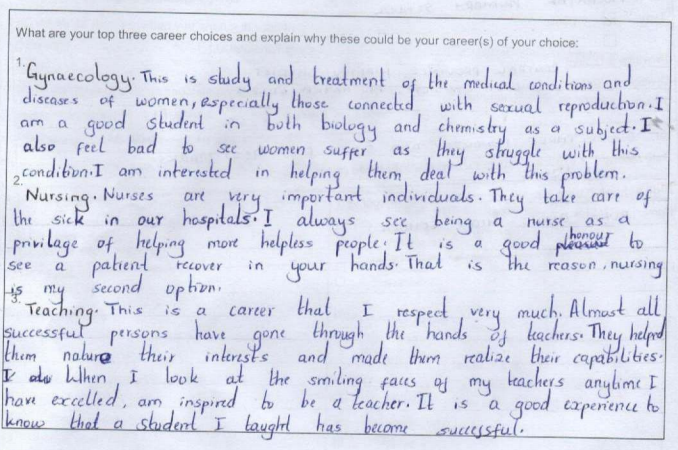 What are your top three career choices and explain why these could be your career(s) of your choice:
1. Gynaecology. This is study and treatment of the medical conditions and
diseases of women, especially those connected with sexual reproduction. I
am a good student in both biology and chemistry as a subject. I
also feel bad to see women suffer as they struggle with this
condition. I am interested in helping them deal with this problem.
2. Nursing. Nurses are very important individuals. They take care of
the sick in our hospitals. I always see being a nurse as a
privilage of helping more helpless people. It is a good honour to
see a patient recover in your hands. That is the reason, nursing
is my second option.
3. Teaching. This is a career that I respect very much. Almost all
successful persons have gone through the hands of teachers. They helped
them nature their interests and made them realize their capabilities.
When I look at the smiling faces of my teachers anytime I
have excelled, am inspired to be a teacher. It is a good experience to
know that a student I taught has become successful.